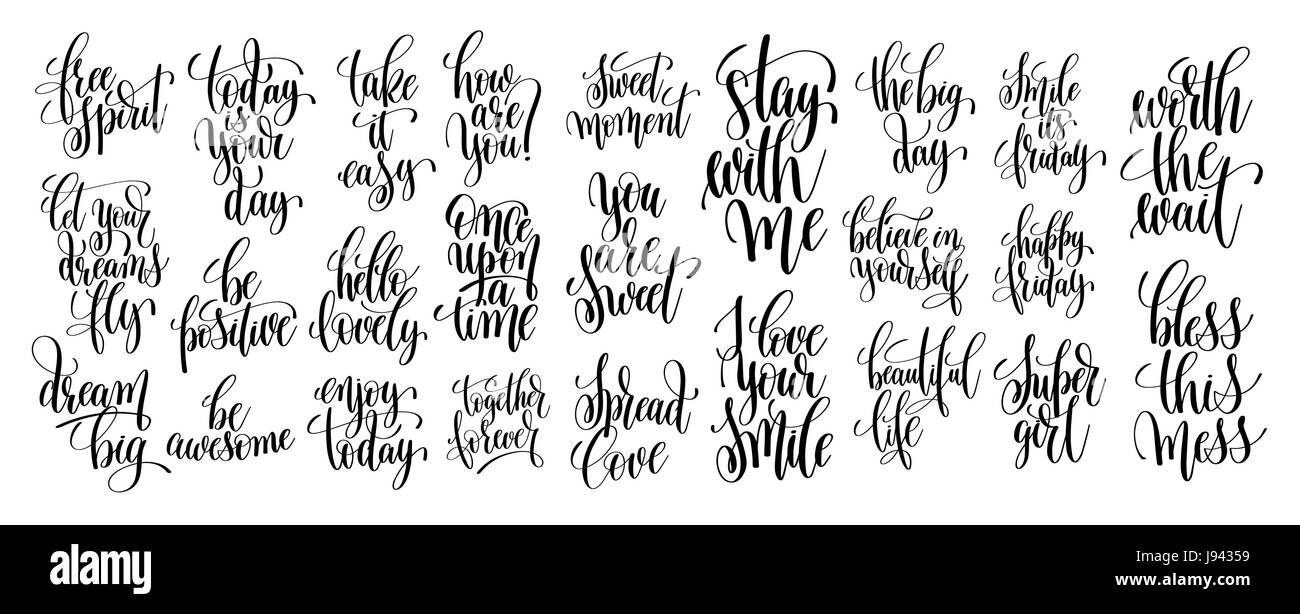 free
spirit
let your
dreams
fly
dream
big
today
is
your
day
be
positive
be
awesome
take
it
easy
hello
lovely
enjoy
today
how
are
you?
Once
upon
a
time
together
forever
sweet
moment
you
are
sweet
Spread
Love
stay
with
me
I love
your
smile
the big
day
believe in
yourself
beautiful
life
smile
it's
friday
happy
friday
Super
girl
worth
the
wait
bless
this
mess
alamy stock photo
a
alamy
Image ID: J94359
www.alamy.com